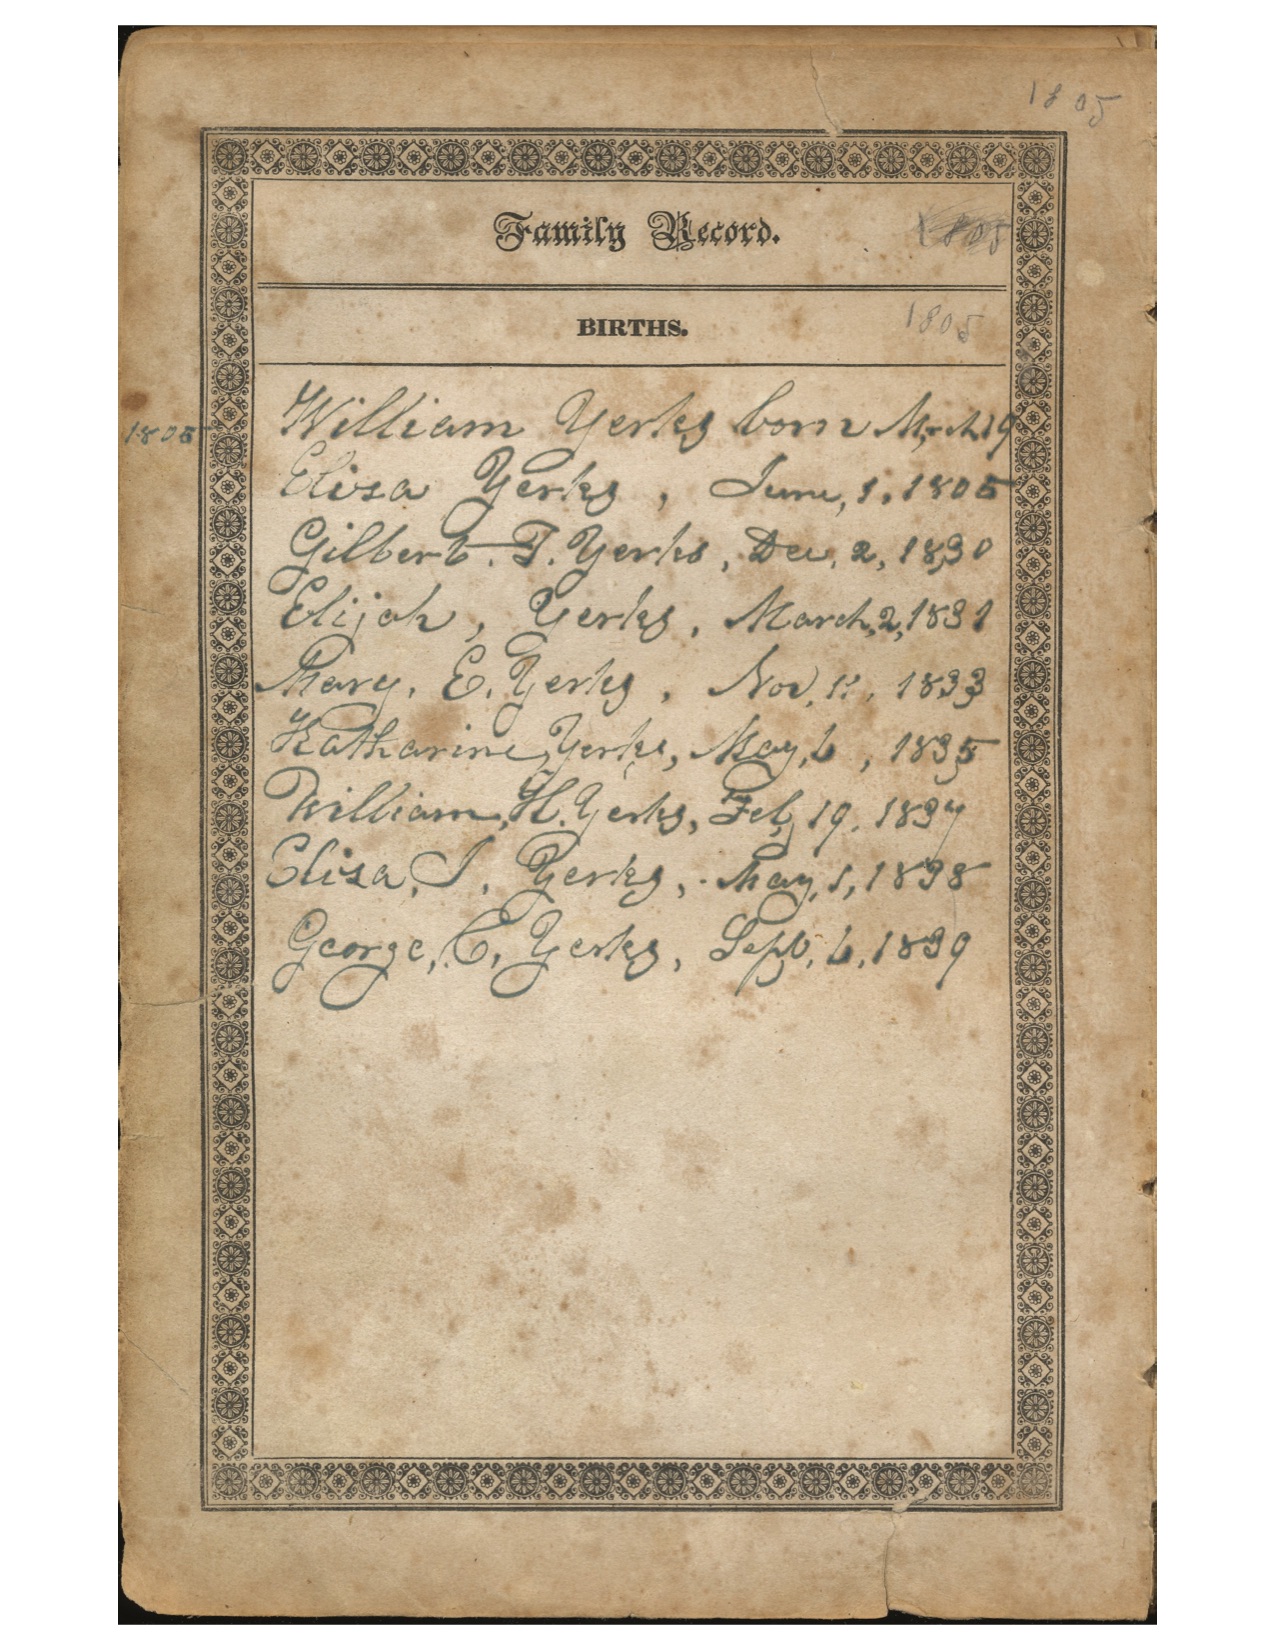 1805
Family Record. 1805
BIRTHS. 1805
1805 William Yerks born March 19
Eliza Yerks, June, 1, 1805
Gilbert. T. Yerks, Dec, 2, 1830
Elijah, Yerks, March, 2, 1831
Mary. E. Yerks, Nov, 11, 1833
Katharine, Yerks, May, 6, 1835
William, H. Yerks, Feb, 19, 1837
Eliza, J, Yerks, May, 1, 1838
George, C, Yerks, Sept, 6, 1839